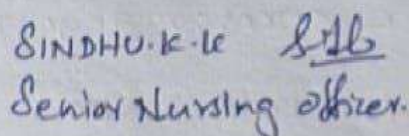 SINDHU.K.K
Senior Nursing Officer.